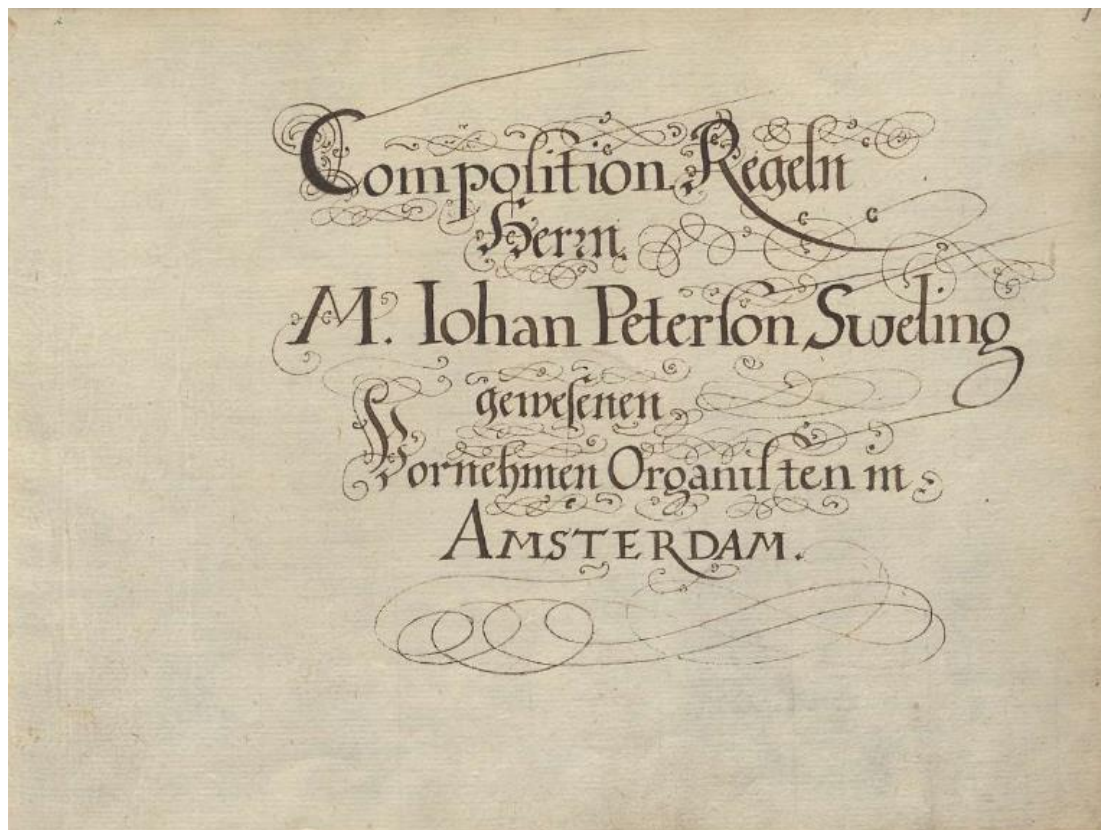 Compoſition Regeln
Herrn.
M. Iohan Peterſon Sweling
geweſenen
Vornehmen Organiſten in
AMSTERDAM.